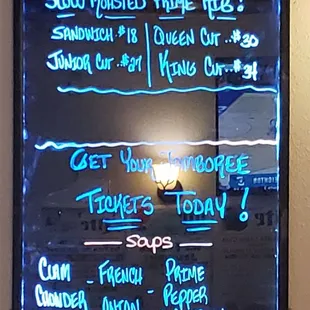 SLOW ROASTED PRIME RIB!
SANDWICH $18 QUEEN CUT..$30
JUNIOR CUT..$27 KING CUT..$34
GET YOUR JAMBOREE
TICKETS TODAY!
Soups
CLAM - FRENCH - PRIME
CHOWDER ONION PEPPER